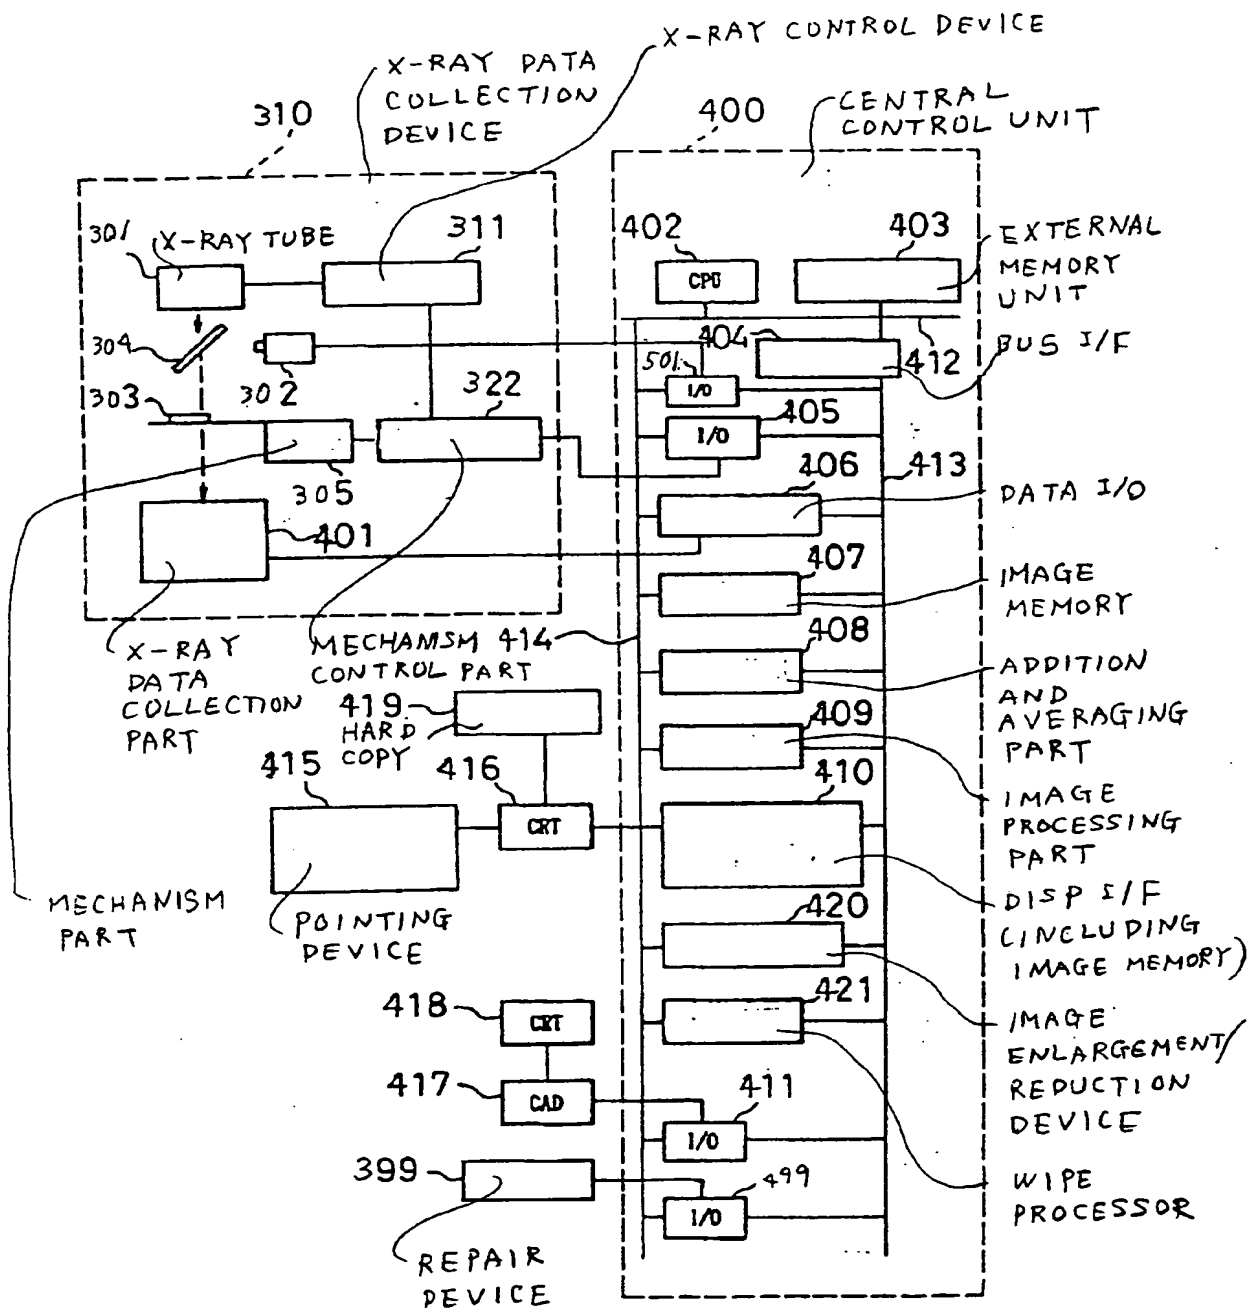 X-RAY CONTROL DEVICE
X-RAY DATA
COLLECTION
DEVICE
310
400
CENTRAL
CONTROL UNIT
301
X-RAY TUBE
311
402
CPU
403
EXTERNAL
MEMORY
UNIT
304
302
404
412
BUS I/F
501
I/O
303
322
405
I/O
305
406
413
DATA I/O
401
407
IMAGE
MEMORY
X-RAY
DATA
COLLECTION
PART
MECHAMSM
CONTROL PART
414
408
ADDITION
AND
AVERAGING
PART
419
HARD
COPY
409
415
416
CRT
410
IMAGE
PROCESSING
PART
MECHANISM
PART
POINTING
DEVICE
DISP I/F
(INCLUDING
IMAGE MEMORY)
420
418
CRT
421
IMAGE
ENLARGEMENT/
REDUCTION
DEVICE
417
CAD
411
I/O
399
499
I/O
WIPE
PROCESSOR
REPAIR
DEVICE